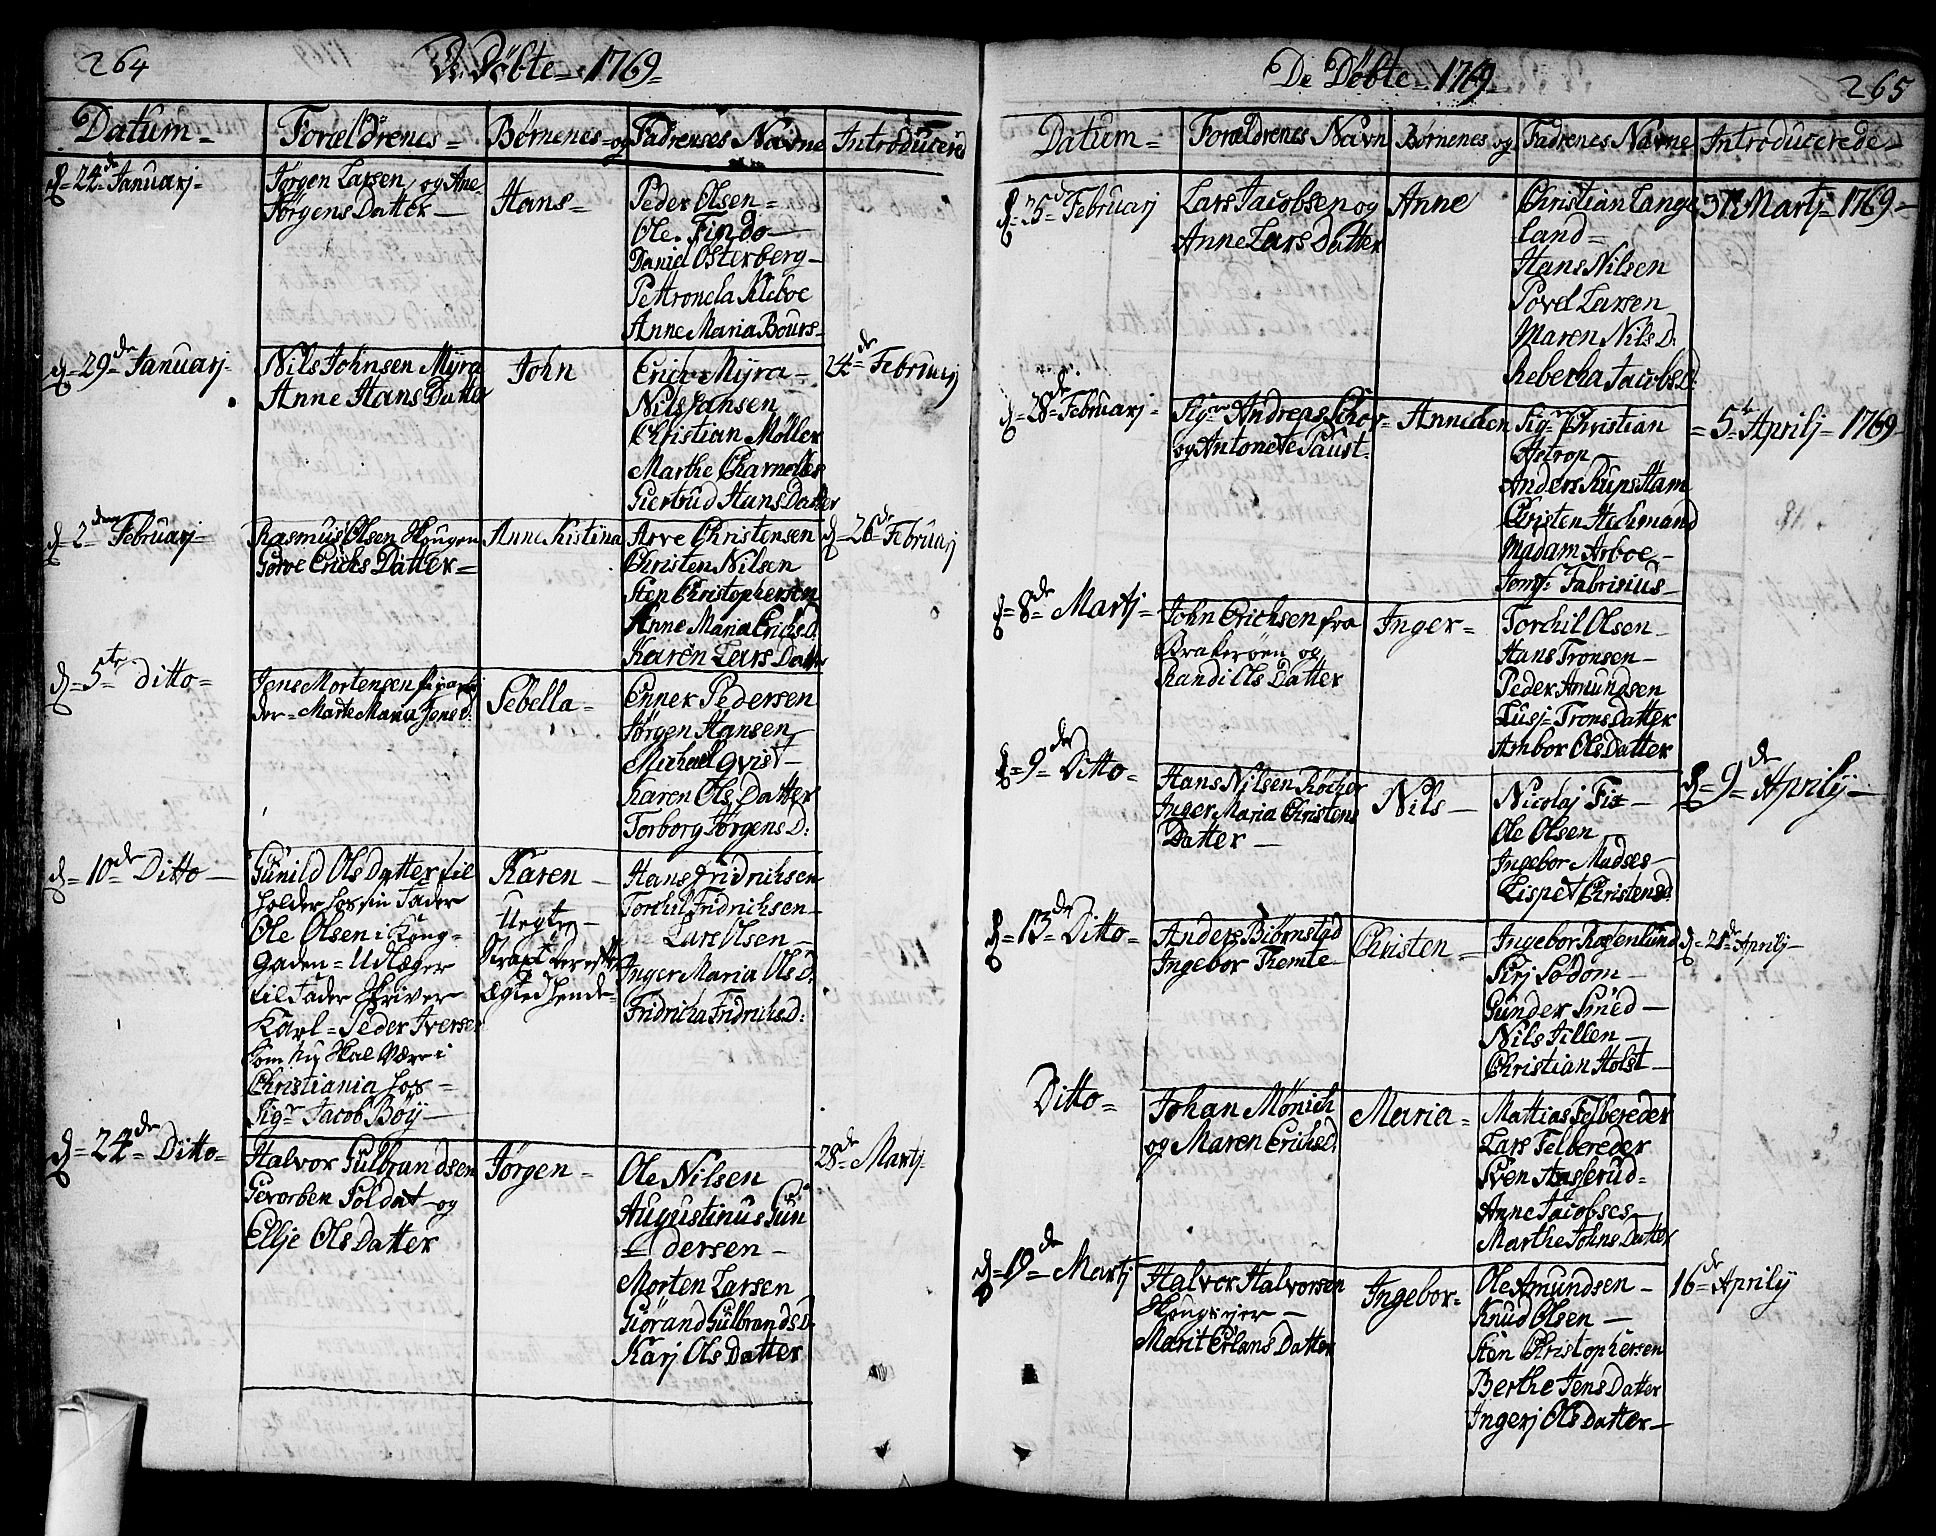 264
De Döbte = 1769 =
Datum =
Forældrenes =
Børnenes = og
Fadrenses Navne
Introducered
d = 24de Januarj =
Jørgen Larsen og Ane
Jørgens Datter —
Hans =
Peder Olsen =
Ole Findo —
Daniel Osterberg —
Pettronela Kleboe
Anne Maria Bours =
d = 29de Januarj =
Nils Johnsen Myra
Anne Hans Datter
John
Erich Myra —
Nils Jansen
Christian Møller
Marthe Charnelles
Giertrud Hans Datter
24de Februarj
d = 2den Februarj =
Rasmus Olsen Hougen
Gorve Erichs Datter =
Anne Kistina
Arve Christensen
Christen Nilsen
Sten Christophersen
Anne Maria Erichs D:
Karen Lars Datter
d = 26de Februarj
d = 5te ditto =
Jens Mortensen
der = Marte Maria Jens d:
Sebella =
Enner Pedersen
Jørgen Hansen
Michael Qvist —
Karen Ols Datter
Torborg Jørgens D:
d = 10de Ditto —
Gunild Ols Datter til
holder hos sin Fader
Ole Olsen i Kong =
gaden = Udlæger
til Fader Skriver
Karl = Peder Iversen
som nu skal være i
Christiania hos =
Sigr Jacob Böÿ —
Karen —
Uegte —
Strax derefter
Ægted hende =
Hans Fridrichsen
Torchil Fridrichsen —
Lars Olsen —
Inger Maria Ols D:
Fridricha Fridrichs D:
d = 24de Ditto =
Halvor Gulbrandsen
Gevorben Soldat = og
Ellje Ols Datter
Jørgen =
Ole Nilsen
Augustinus Gun
= dersen —
Morten Larsen
Giørand Gulbrands D:
Karj Ols Datter
28de Martj
De Döbte = 1769
265
Datum =
Forældrenes Navn
Børnenes og
Fadrenes Navne
Introducerede =
d = 25de Februarj
Lars Jacobsen og
Anne Lars Datter
Anne
Christian Lange
land =
Hans Nilsen
Povel Larsen
Maren Nils D:
Rebecha Jacobs D:
Martj = 1769 —
d = 28de Februarj =
Sigr Andreas Schov =
og Antonette Faust =
Anneken
Sigr Christian
Astrop —
Anders Rups Ham
Christen Hechmand
Madam Arboe —
Jomf: Fabrisius —
= 5te Aprilj = 1769
d = 8de Martj =
John Erichsen fra
Brakerøen og
Randi Ills Datter
Inger =
Torchil Olsen —
Hans Tronsen —
Peder Amundsen
Lusj = Trons Datter
Ambor Ols Datter
d = 9de Ditto =
Hans Nilsen Röcker
Inger Maria Christens
Datter —
Nils —
Nicolaj Fix —
Ole Olsen
Ingebor Madses —
Lispet Christens d:
d = 9de Aprilÿ —
d = 13de Ditto =
Anders Biörnstad
Ingebor Remte —
Christen =
Ingebor Rosenlund
Sirj Södom —
Gunder Smed —
Nils Tillen —
Christian Holst —
d = 21de Aprilj —
Ditto =
Johan Mønich
og Maren Erichs d:
Maria =
Mattias Felbereder
Lars Felbereder
Sven Haserud =
Anne Jacobses —
Marthe Johns Datter
d = 19de Martj
Halvor Halvorsen
Hougsejer —
Marit Erlans Datter
Ingebor =
Ole Amundsen —
Knud Olsen —
Sten Christophersen
Berthe Jens Datter
Ingerj Ols Datter —
16de Aprilÿ